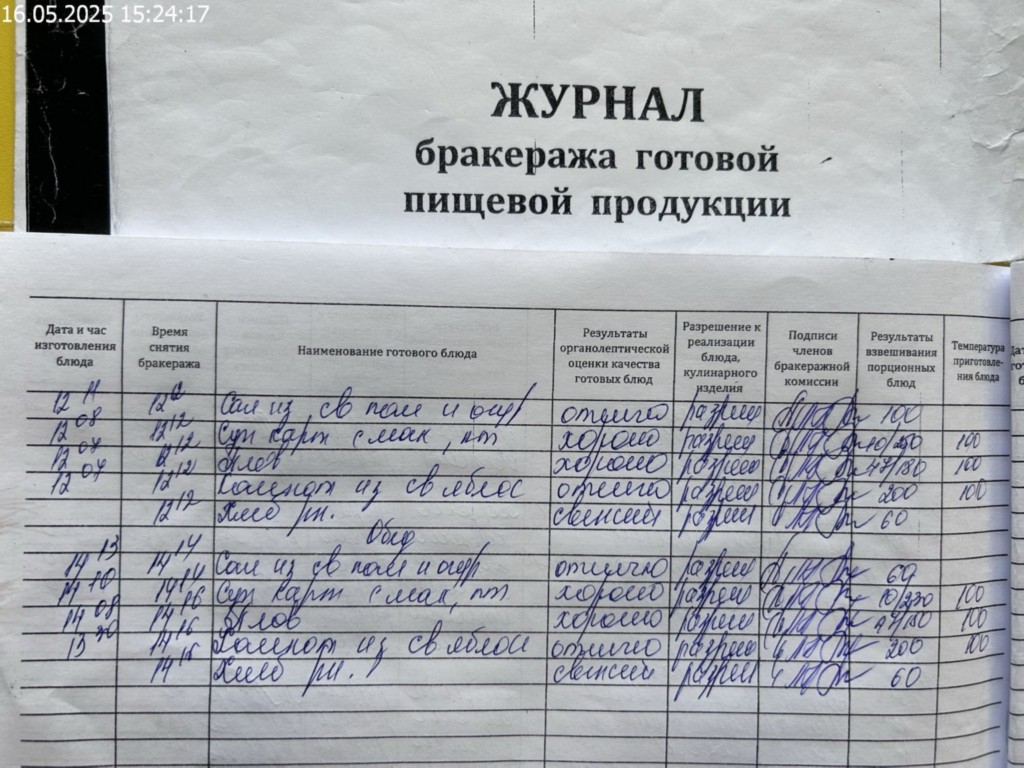 16.05.2025 15:24:17
ЖУРНАЛ
бракеража готовой
пищевой продукции
Дата и час изготовления блюда Время снятия бракеража Наименование готового блюда Результаты органолептической оценки качества готовых блюд Разрешение к реализации блюда, кулинарного изделия Подписи членов бракеражной комиссии Результаты взвешивания порционных блюд Температура приготовле-ния блюда
12 11 12 Сал из св пом и огур отлично разреш 100
12 08 12 12 Суп карт с мак, пт хорошо разреш 10/250 100
12 12 12 Плов хорошо разреш /180 100
12 07 12 12 Компот из св яблос отлично разреш 200 100
12 12 Хлеб рн. свежий разреш 60
Обед
14 13 14 14 Сал из св пом и огур отлично разреш 60
14 10 14 14 Суп карт с мак, пт хорошо разреш 10/230 100
14 08 14 16 Плов хорошо разреш /180 100
13 30 14 16 Компот из св яблос отлично разреш 200 100
14 16 Хлеб рн. свежий разреш 60